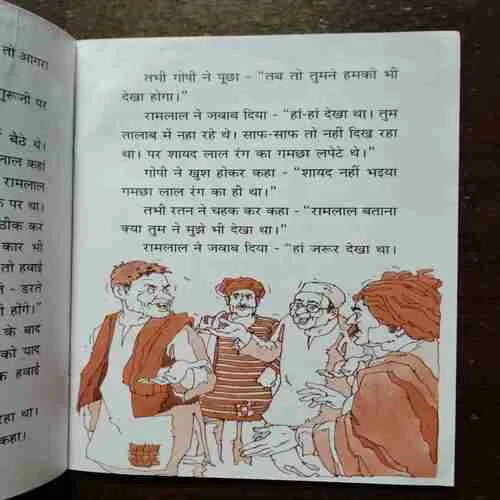 तो आगरा
गुरूजी पर
बैठे थे।
लाल कहां
रामलाल
क पर था।
ठीक कर
कार भी
तो हवाई
ते - डरते
होंगे।”
के बाद
को याद
क हवाई
रहा था।
कहा।
तभी गोपी ने पूछा - “तब तो तुमने हमको भी
देखा होगा।”
रामलाल ने जवाब दिया - “हां-हां देखा था। तुम
तालाब में नहा रहे थे। साफ-साफ तो नहीं दिख रहा
था। पर शायद लाल रंग का गमछा लपेटे थे।”
गोपी ने खुश होकर कहा - “शायद नहीं भइया
गमछा लाल रंग का ही था।”
तभी रतन ने चहक कर कहा - “रामलाल बताना
क्या तुम ने मुझे भी देखा था।”
रामलाल ने जवाब दिया - “हां जरूर देखा था।